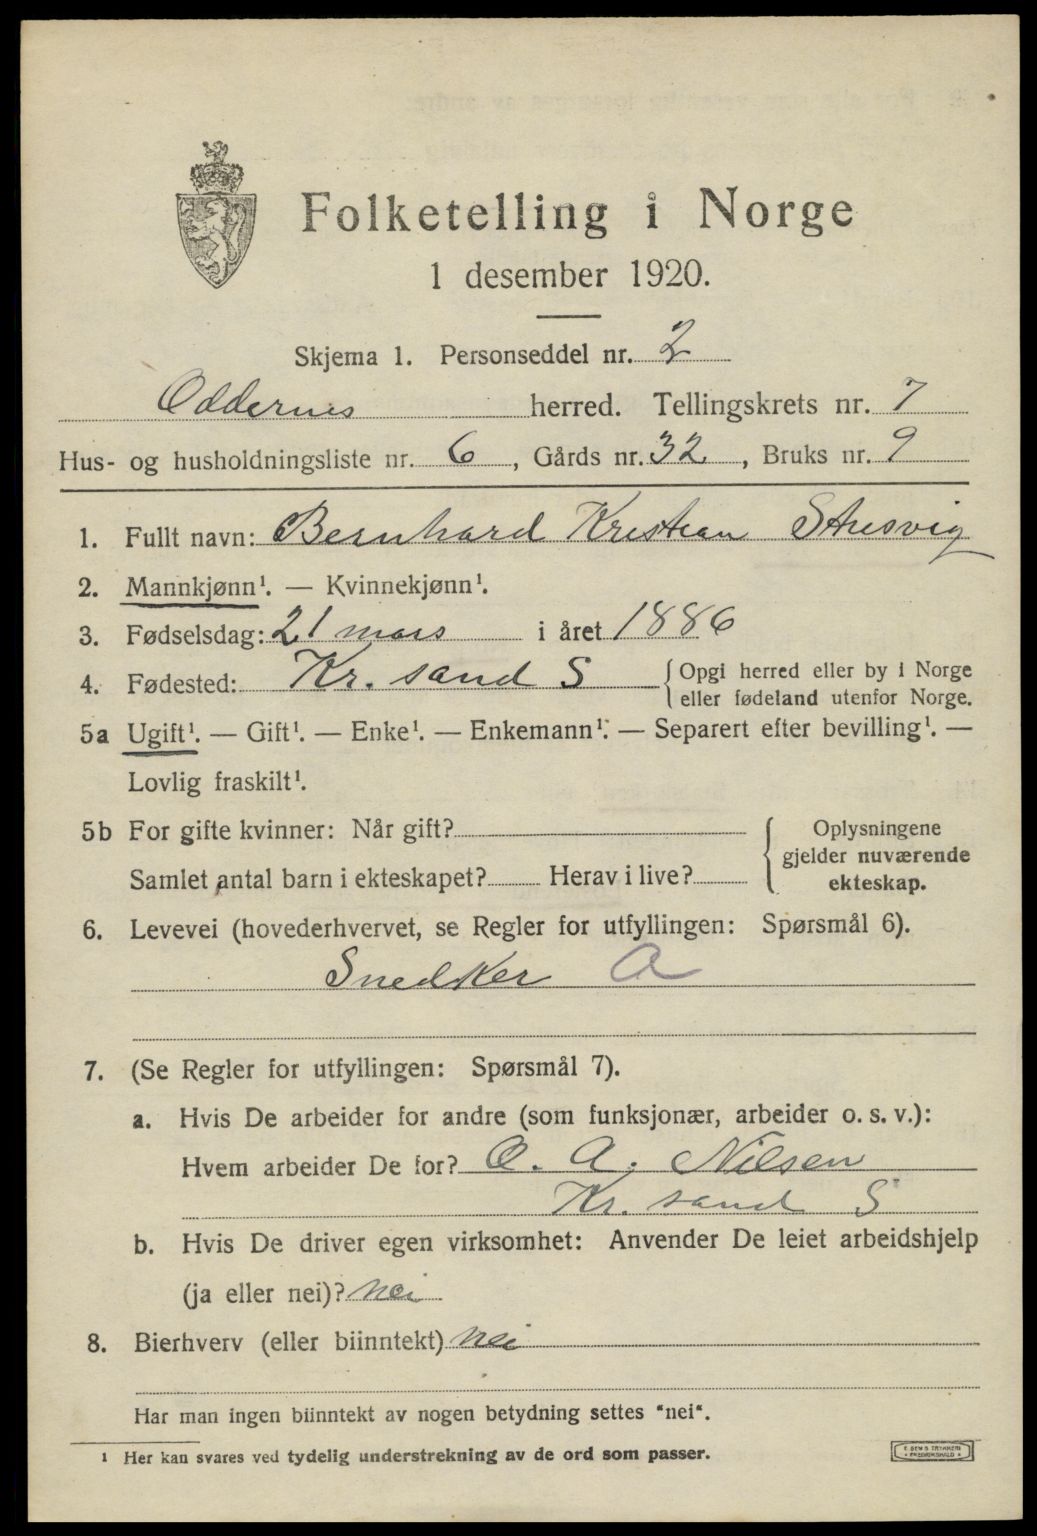 Folketelling i Norge
1 desember 1920.
Skjema 1. Personseddel nr. 2
Oddernes herred. Tellingskrets nr. 7
Hus- og husholdningsliste nr. 6, Gårds nr. 32, Bruks nr. 9
1. Fullt navn: Bernhard Kristian Stusvig
2. Mannkjønn¹. — Kvinnekjønn¹.
3. Fødselsdag: 21 mars i året 1886
4. Fødested: Kr. sand S { Opgi herred eller by i Norge
eller fødeland utenfor Norge.
5a Ugift¹. — Gift¹. — Enke¹. — Enkemann¹. — Separert efter bevilling¹. —
Lovlig fraskilt¹.
5b For gifte kvinner: Når gift?
Samlet antal barn i ekteskapet? Herav i live?
{ Oplysningene
gjelder nuværende
ekteskap.
6. Levevei (hovederhvervet, se Regler for utfyllingen: Spørsmål 6).
Snedker A
7. (Se Regler for utfyllingen: Spørsmål 7).
a. Hvis De arbeider for andre (som funksjonær, arbeider o. s. v.):
Hvem arbeider De for? O. A. Nilsen
Kr. sand S
b. Hvis De driver egen virksomhet: Anvender De leiet arbeidshjelp
(ja eller nei)? nei
8. Bierhverv (eller biinntekt) nei
Har man ingen biinntekt av nogen betydning settes "nei".
¹ Her kan svares ved tydelig understrekning av de ord som passer.